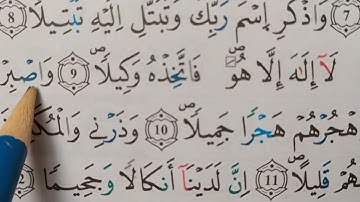 7 وَاذْكُرِ اسْمَ رَبِّكَ وَتَبَتَّلْ إِلَيْهِ تَبْتِيلًاۗ 8
لَآ إِلٰهَ إِلَّا هُوَ فَاتَّخِذْهُ وَكِيلًا 9 وَاصْبِرْ
هْجُرْهُمْ هَجْرًا جَمِيلًا 10 وَذَرْنِي وَالْمُكَ
هُمْ قَلِيلًا 11 إِنَّ لَدَيْنَآ أَنكَالًا وَجَحِيمًا 2